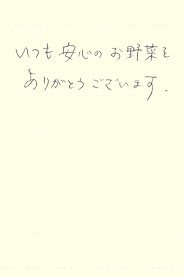 いつも安心のお野菜を
ありがとうございます.